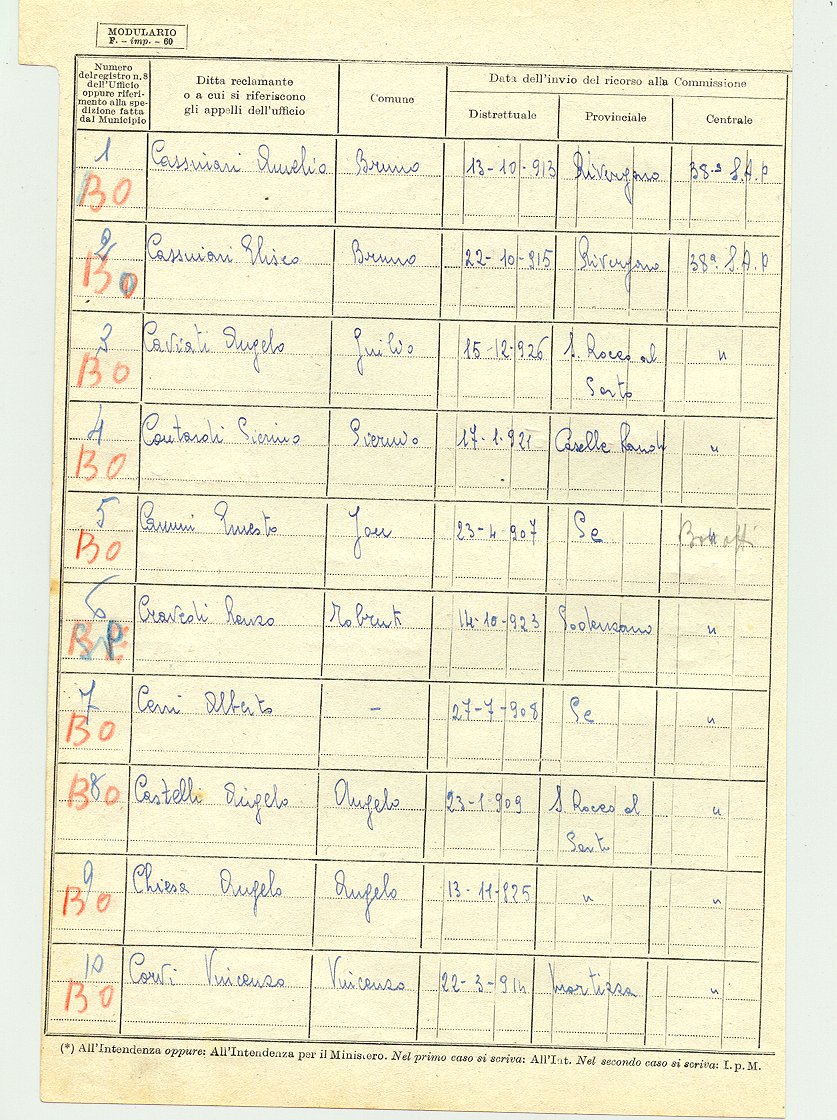 MODULARIO
F. - imp. - 60
Numero
del registro n. 8
dell'Ufficio
oppure riferi-
mento alla spe-
dizione fatta
dal Municipio
Ditta reclamante
o a cui si riferiscono
gli appelli dell'ufficio
Comune
Data dell'invio del ricorso alla Commissione
Distrettuale
Provinciale
Centrale
1 Cassinari Aurelio Bruno 13-10-913 Rivergaro 38ª S.A.P
BO
2 Cassinari Eliseo Bruno 22-10-915 Rivergaro 38ª S.A.P
BO
3 Caviati Angelo Giulio 15-12-926 S. Rocco al
BO Porto
4 Contardi Pierino Pierino 17-1-921 Caselle Landi "
BO
5 Ernesto 23-4-907 Pc
BO
6 Cravedi Renzo 14-10-923 Podenzano "
7 Cerri Alberto - 27-7-908 Pc "
BO
8 Castelli Angelo Angelo 23-1-909 S. Rocco al "
BO Porto
9 Chiesa Angelo Angelo 13-11-825 " "
BO
10 Corvi Vincenzo Vincenzo 22-3-914 Mortizza "
BO
(*) All'Intendenza oppure: All'Intendenza per il Ministero. Nel primo caso si scriva: All'Int. Nel secondo caso si scriva: I. p. M.